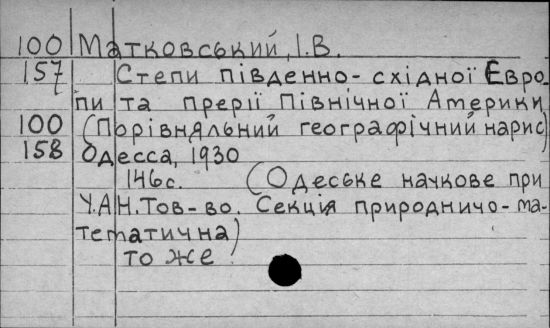 100 Матковський, І.В.
157 Степи південно-східної Євро-
пи та прерії Північної Америки
100 (Порівняльний географічний нарис)
158 Одесса, 1930
146с. (Одеське наукове при
У.А.Н.Тов-во. Секція природничо-ма-
тематична)
то же